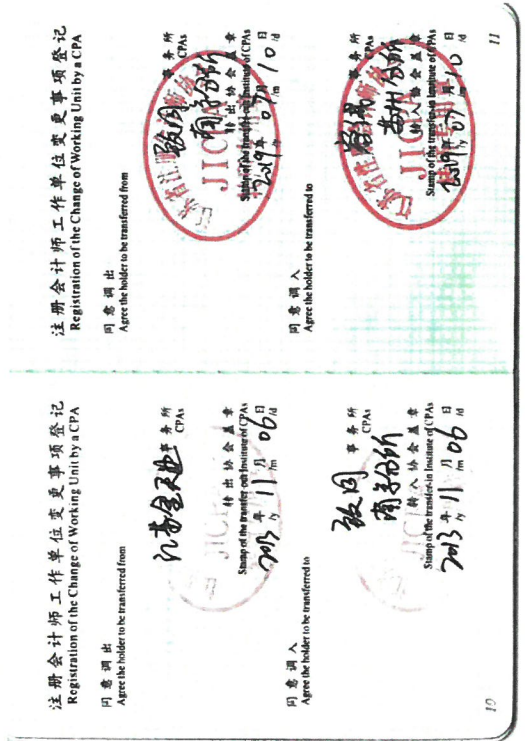 注册会计师工作单位变更事项登记
Registration of the Change of Working Unit by a CPA
同意调出
Agree the holder to be transferred from
江苏金天业
事务所
CPAs
JIC
转出协会盖章
Stamp of the transfer-out Institute of CPAs
2013年11月06日
/y /m /d
同意调入
Agree the holder to be transferred to
致同
事务所
CPAs
南京分所
转入协会盖章
Stamp of the transfer-in Institute of CPAs
2013年11月06日
/y /m /d
10
注册会计师工作单位变更事项登记
Registration of the Change of Working Unit by a CPA
同意调出
Agree the holder to be transferred from
致同
事务所
CPAs
南京分所
JICPA
转出协会盖章
Stamp of the transfer-out Institute of CPAs
2019年07月10日
/m /d
同意调入
Agree the holder to be transferred to
事务所
CPAs
苏州分所
JICPA
转入协会盖章
Stamp of the transfer-in Institute of CPAs
2019年07月10日
/y /m /d
11